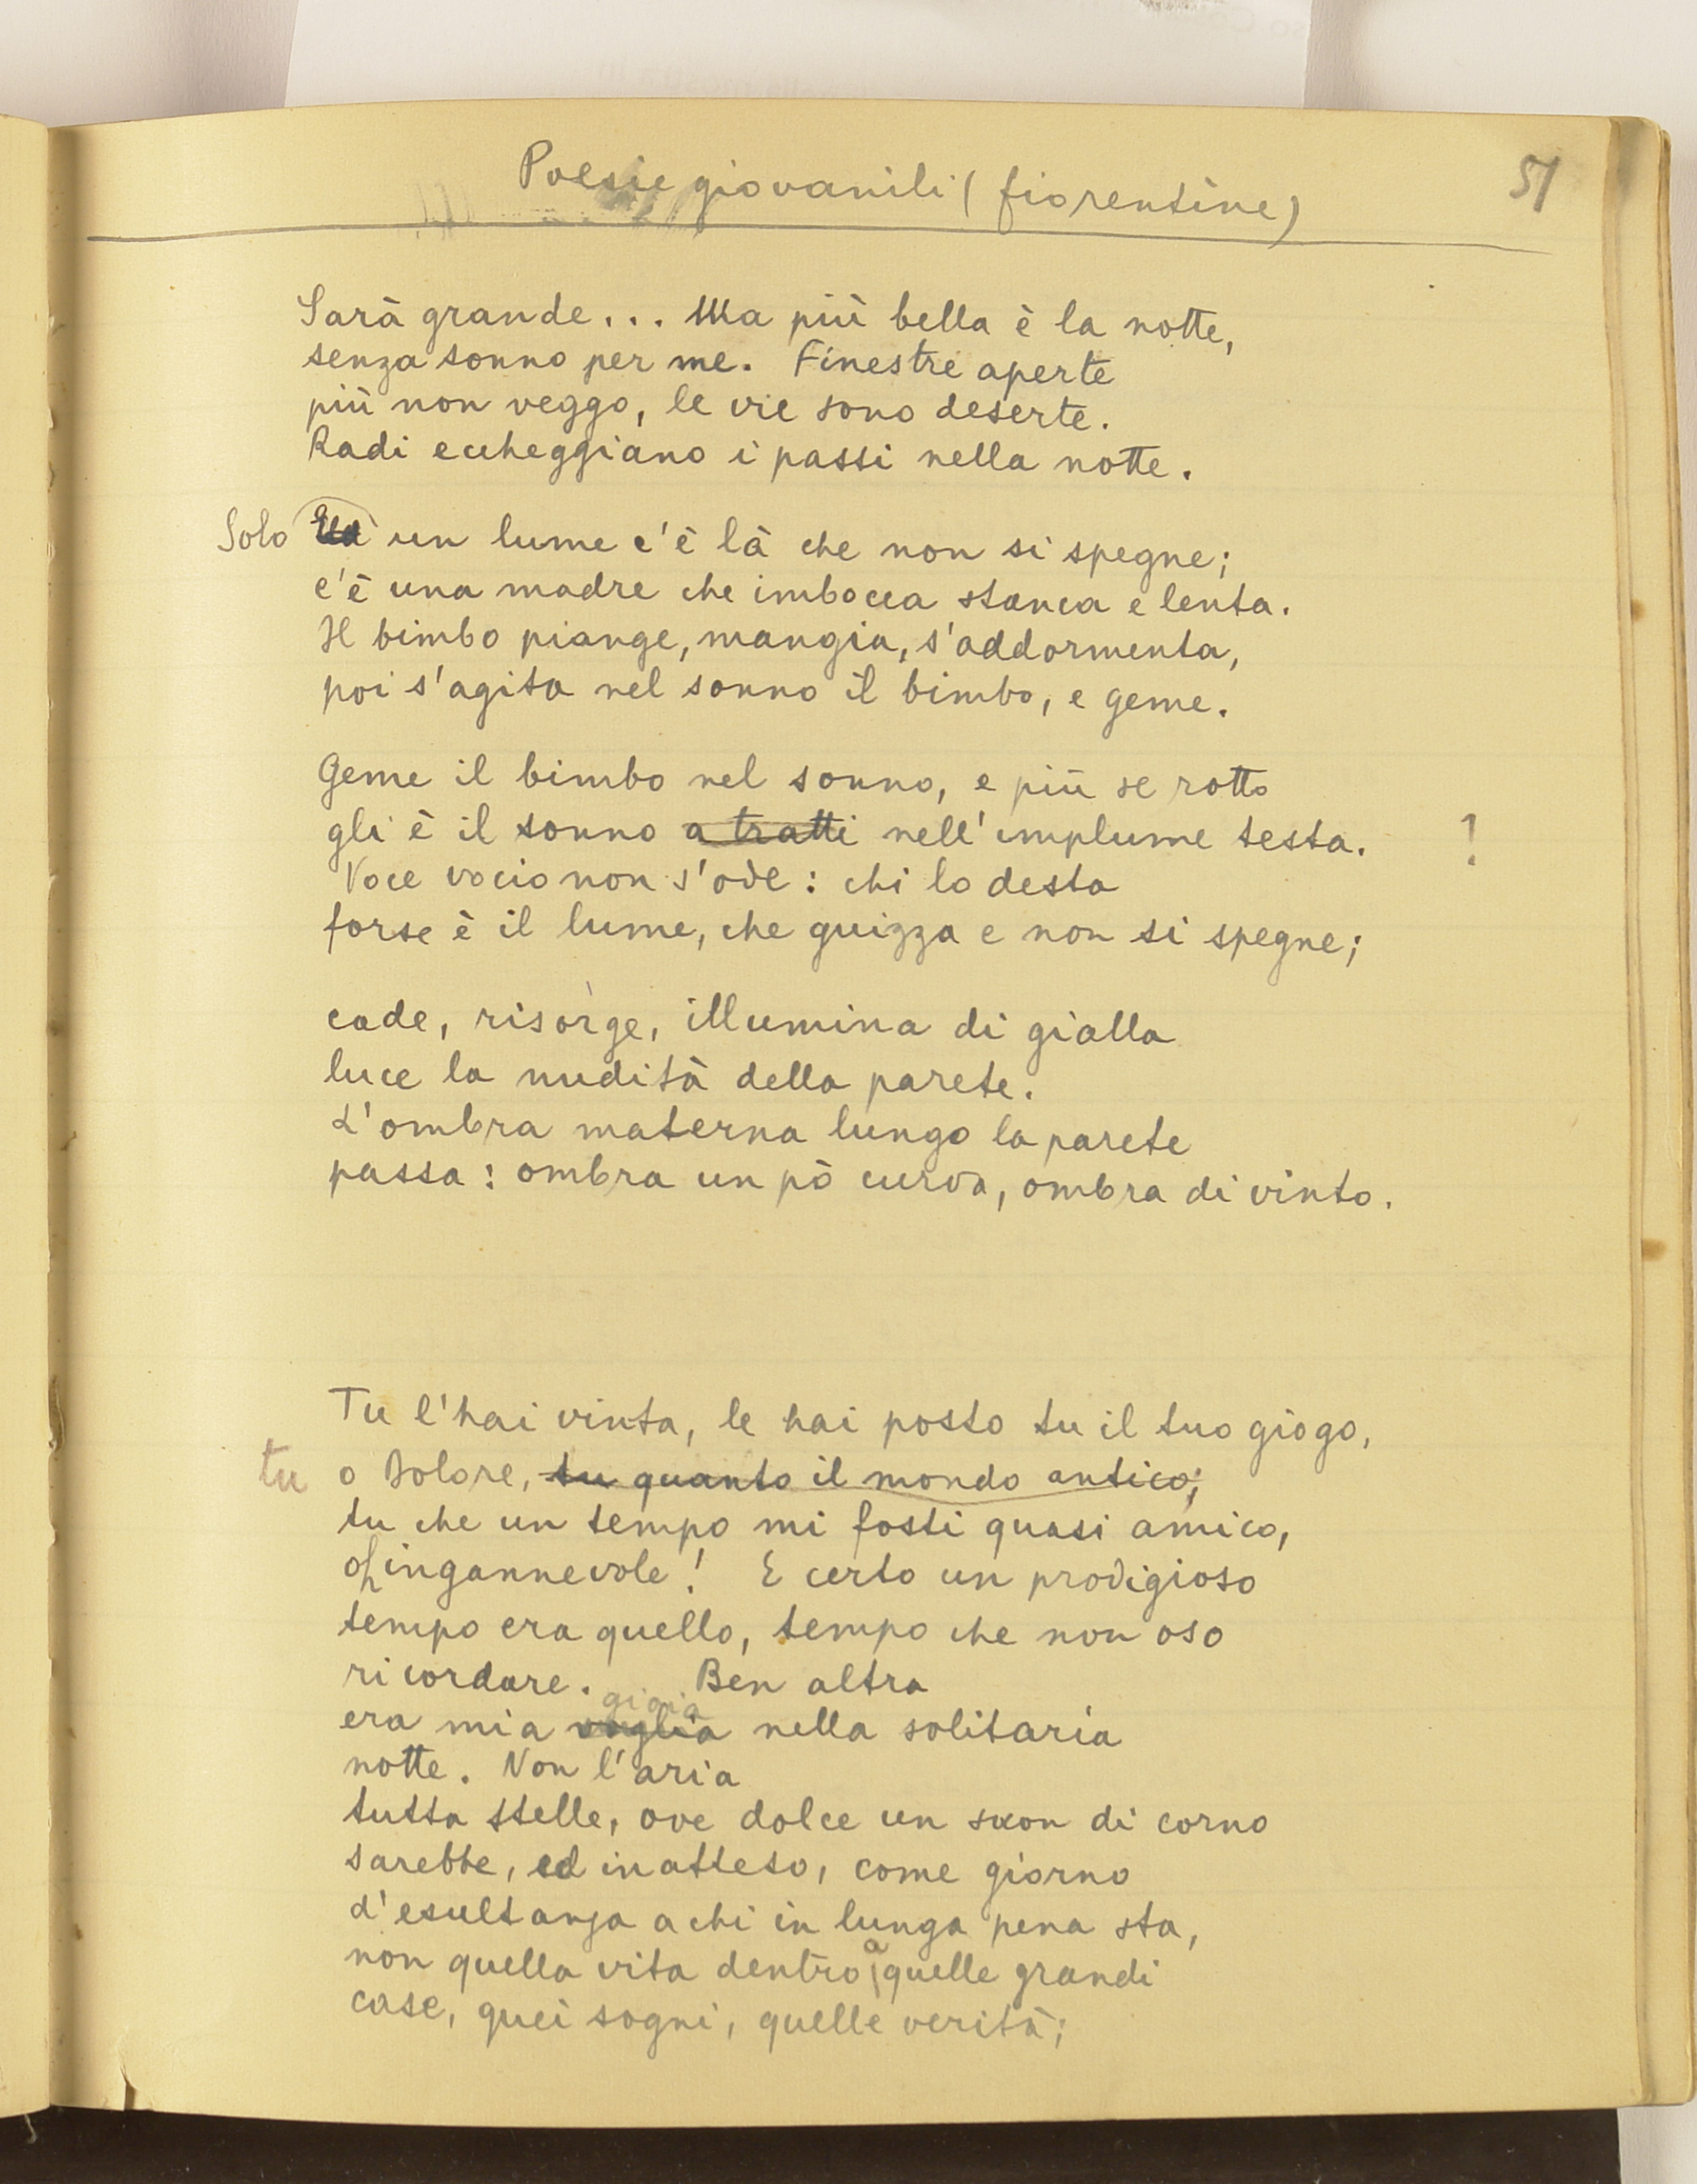 Poesie giovanili (fiorentine)
51
Sarà grande... Ma più bella è la notte,
senza sonno per me. Finestre aperte
più non veggo, le vie sono deserte.
Radi eccheggiano i passi nella notte.
Solo un lume c'è là che non si spegne;
c'è una madre che imbocca stanca e lenta.
Il bimbo piange, mangia, s'addormenta,
poi s'agita nel sonno il bimbo, e geme.
Geme il bimbo nel sonno, e più se rotto
gli è il sonno a tratti nell'implume testa.
Voce vocio non s'ode: chi lo desta
forse è il lume, che guizza e non si spegne;
cade, risorge, illumina di gialla
luce la nudità della parete.
L'ombra materna lungo la parete
passa: ombra un pò curva, ombra di vinto.
Tu l'hai vinta, le hai posto tu il tuo giogo,
tu o Dolore, tu quanto il mondo antico;
tu che un tempo mi fosti quasi amico,
oh ingannevole! E certo un prodigioso
tempo era quello, tempo che non oso
ricordare. Ben altra
gioia
era mia voglia nella solitaria
notte. Non l'aria
tutta stelle, ove dolce un suon di corno
sarebbe, ed inatteso, come giorno
d'esultanza a chi in lunga pena sta,
non quella vita dentro a quelle grandi
case, quei sogni, quelle verità;